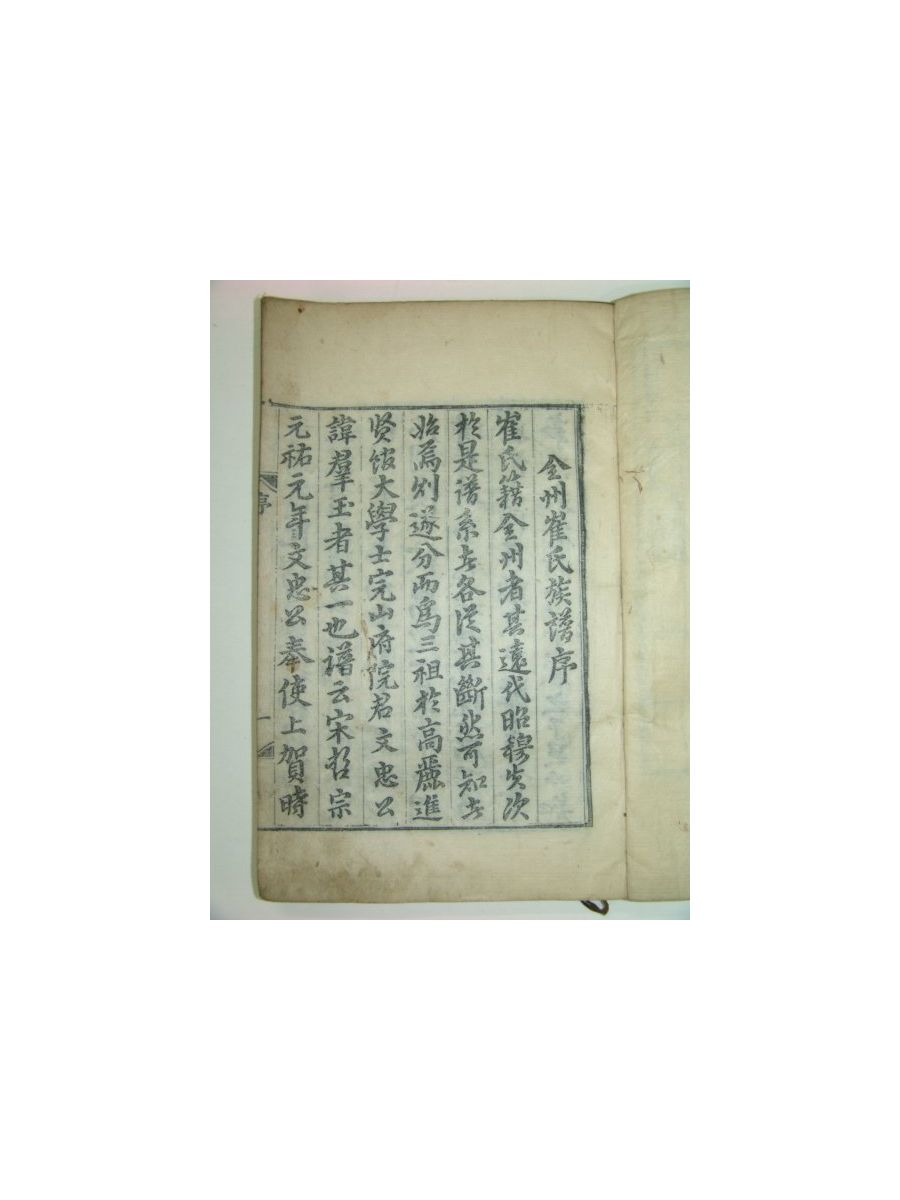 全州崔氏族譜序
崔氏籍全州者其遠代昭穆失次
於是譜系者各從其斷然可知者
始焉別遂分而爲三祖於高麗進
賢館大學士完山府院君文忠公
諱羣玉者其一也譜云宋哲宗
元祐元年文忠公奉使上賀時
序
一